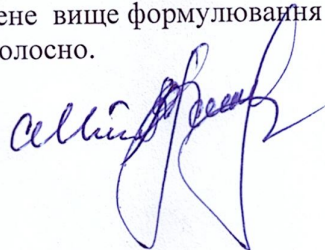 ене вище формулювання
олосно.